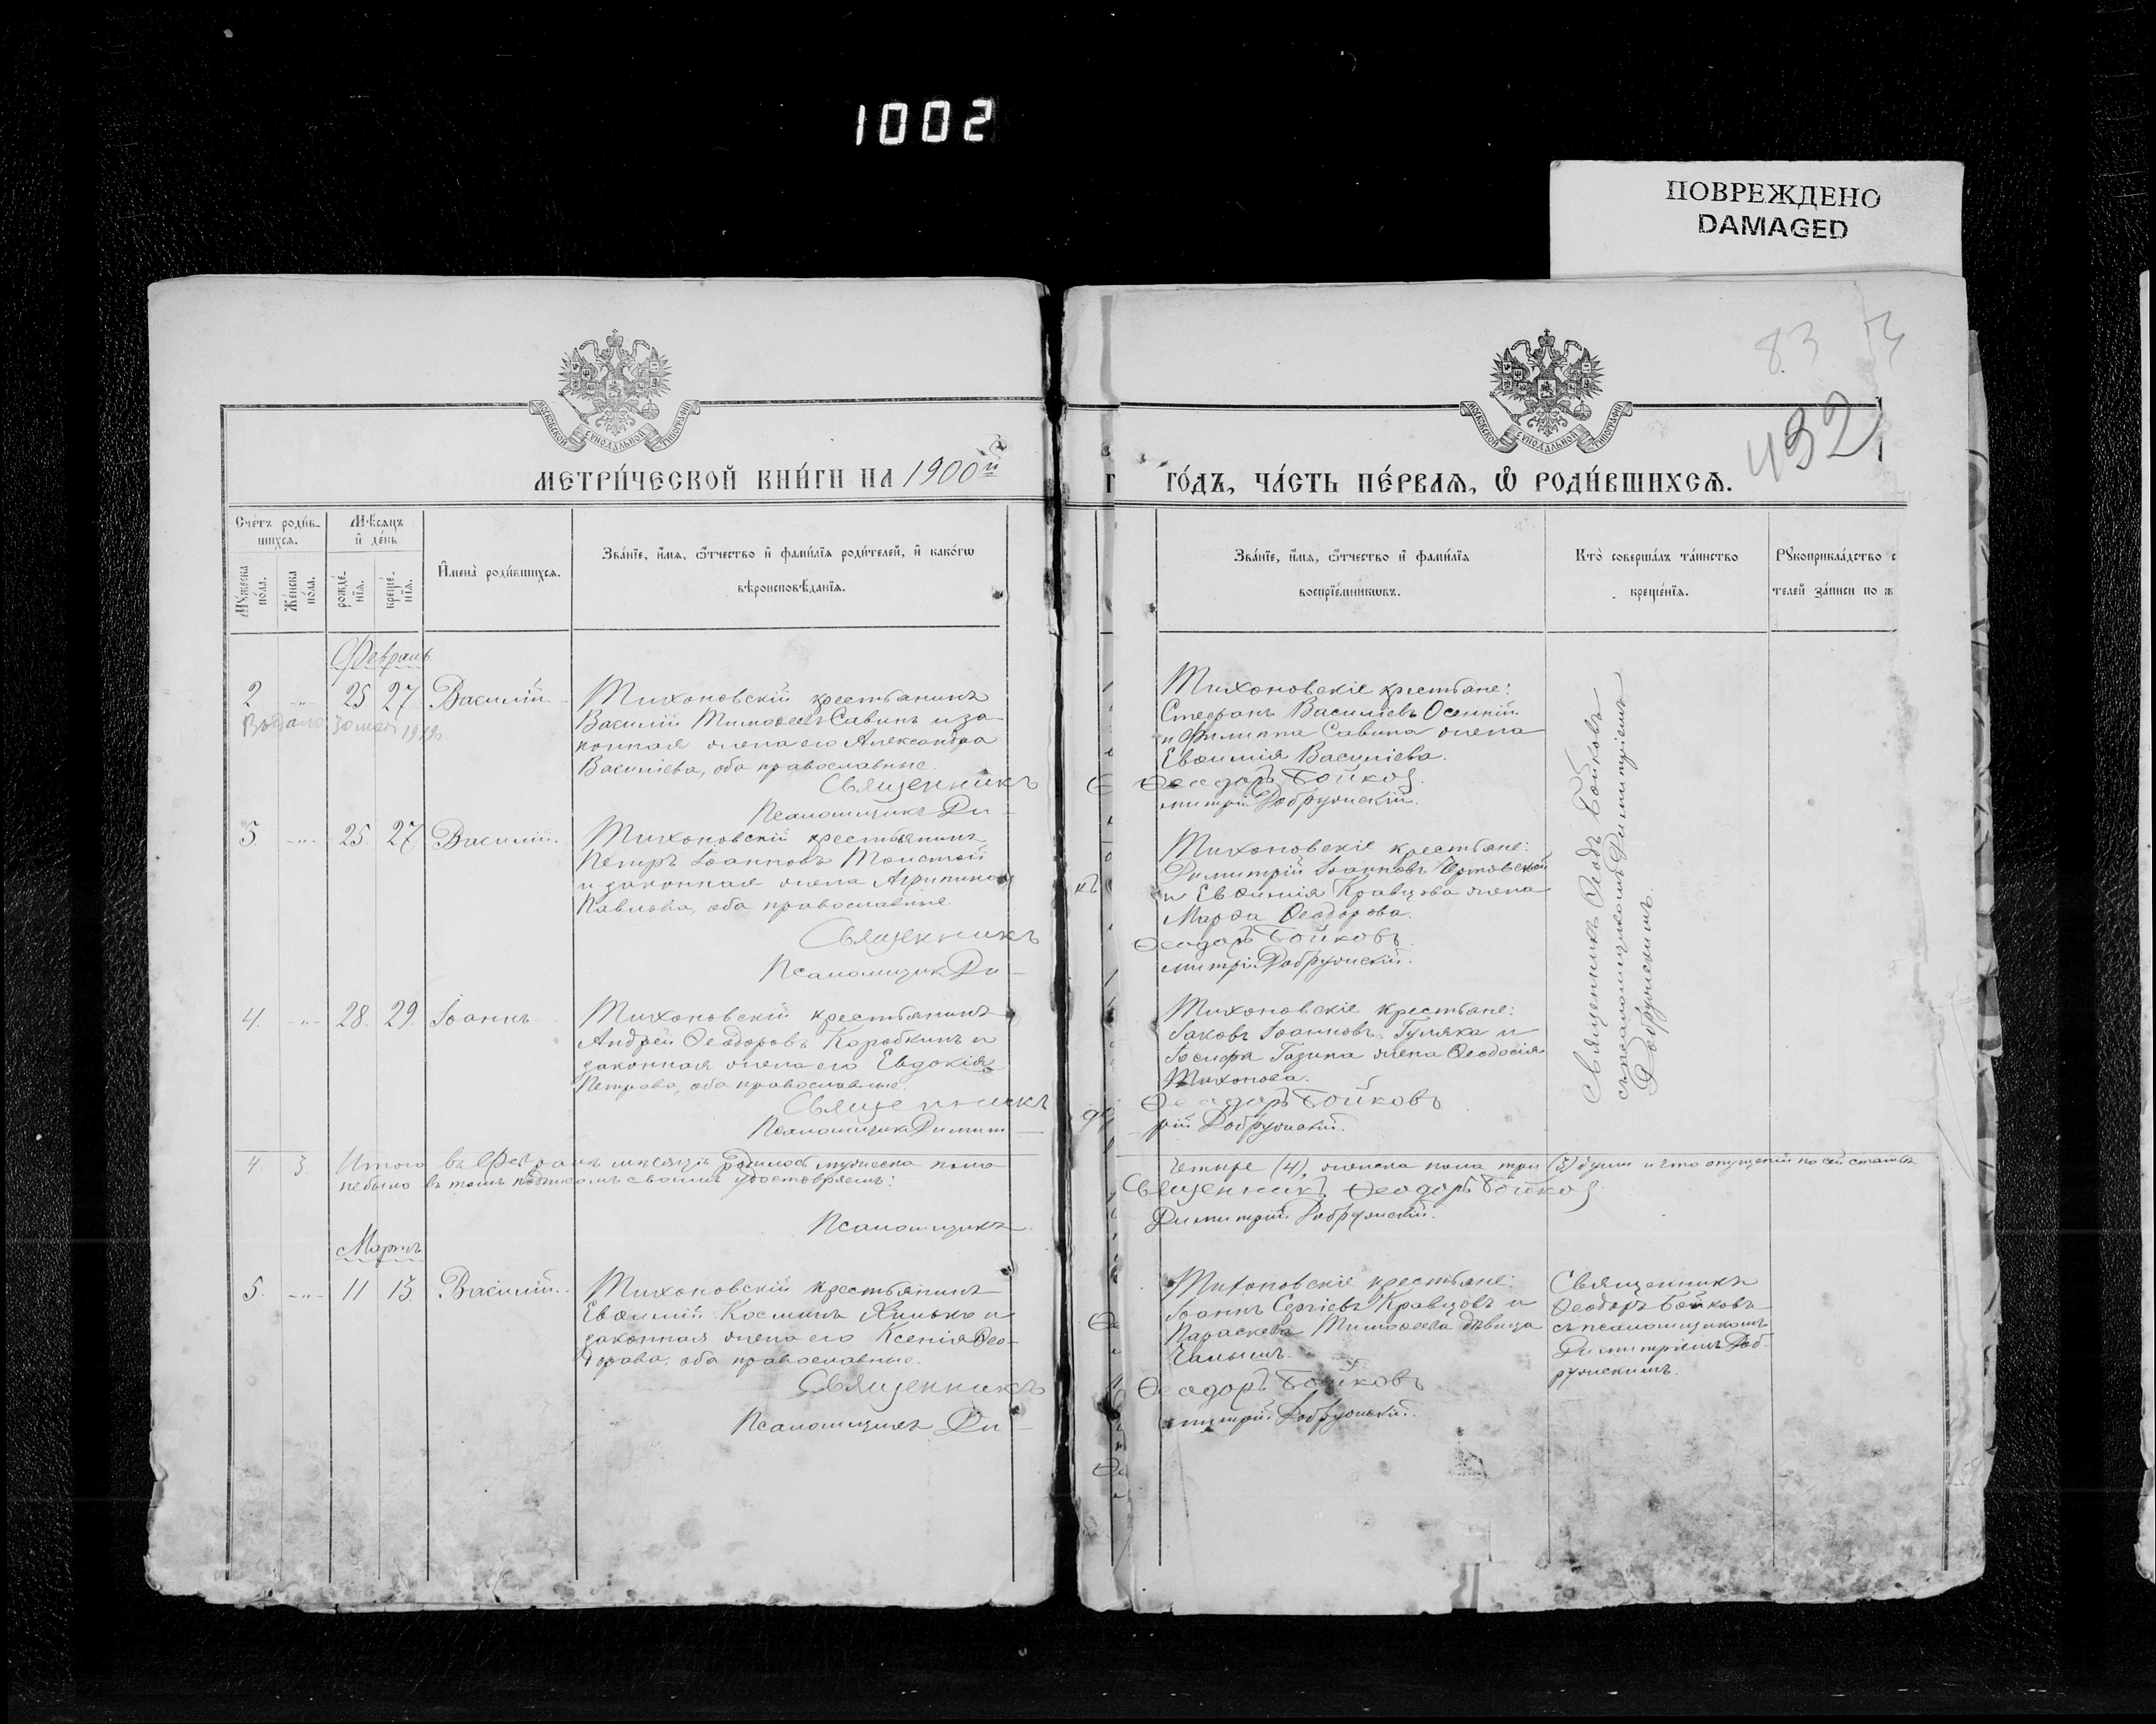 1002
ПОВРЕЖДЕНО
DAMAGED
83
432
МОСКОВСКОЙ СѴНОДАЛЬНОЙ ТИПОГРАФІИ
МОСКОВСКОЙ СѴНОДАЛЬНОЙ ТИПОГРАФІИ
МЕТРИ́ЧЕСКОЙ КНИ́ГИ НА 1900й
ГО́ДЪ, ЧА́СТЬ ПЕ́РВАѦ, Ѡ҆ РОДИ́ВШИХСѦ.
Сче́тъ роди́в-
шихсѧ.
Мꙋ́жеска
по́ла.
Же́нска
по́ла.
Мѣ́сѧцъ
и҆ де́нь
рожде́-
нїѧ.
креще́-
нїѧ.
И҆мена̀ роди́вшихсѧ.
Зва́нїе, и҆́мѧ, ѻ҆́тчество и҆ фами́лїѧ роди́телей, и҆ како́гѡ
вѣроисповѣ́данїѧ.
Зва́нїе, и҆́мѧ, ѻ҆́тчество и҆ фами́лїѧ
воспрїе́мникѡвъ.
Кто̀ соверша́лъ та́инство
креще́нїѧ.
Рꙋкоприкла́дство с
телей за́писи по ж
Февраль
2 -"- 25 27 Василій
Тихоновскій крестьянинъ
Василій Тимоѳеевъ Савинъ и за-
конная жена его Александра
Василіева, оба православные.
Священникъ
Псаломщикъ Ди-
Тихоновскіе крестьяне:
Стефанъ Василіевъ Осенній
и Филиппа Савина жена
Евѳимія Василіева.
Ѳеодоръ Бойковъ
митрій Добружскій.
3 -"- 25. 27 Василій.
Тихоновскій крестьянинъ
Петръ Іоанновъ Толстой
и законная жена Агрипина
Павлова, оба православные.
Священникъ
Псаломщикъ Ди-
Тихоновскіе крестьяне:
Димитрій Іоанновъ
и Евѳимія Кравцова жена
Марѳа Ѳеодорова.
Ѳеодоръ Бойковъ
митрій Добружскій.
4. -"- 28. 29. Іоаннъ
Тихоновскій крестьянинъ
Андрей Ѳеодоровъ Коробкинъ и
законная жена его Евдокія
Петрова, оба православные.
Священникъ
Псаломщикъ Димит-
Тихоновскіе крестьяне:
Іаковъ Іоанновъ Гуляка и
Іосифа Газина жена Ѳеодосія
Тихонова.
Ѳеодоръ Бойковъ
рій Добружскій.
Священникъ Ѳеод. Бойковъ
съ псаломщикомъ Димитріемъ
Добружскимъ.
4. 3. Итого въ Февралѣ мѣсяцѣ родилось мужеска пола
четыре (4), женска пола три (3) души и что опущеній по сей статьѣ
не было въ томъ подписомъ своимъ удостовѣряемъ:
Священникъ Ѳеодоръ Бойковъ
Псаломщикъ
Димитрій Добружскій.
Мартъ
5. -"- 11 13. Василій.
Тихоновскій крестьянинъ
Евѳимій Косминъ Хилько и
законная жена его Ксенія Ѳео-
дорова, оба православные.
Священникъ
Псаломщикъ Ди-
Тихоновскіе крестьяне:
Іоаннъ Сергіевъ Кравцовъ и
Параскева Тимоѳеева дѣвица
Ѳеодоръ Бойковъ
митрій Добружскій.
Священникъ
Ѳеодоръ Бойковъ
съ псаломщикомъ
Димитріемъ Доб-
ружскимъ.